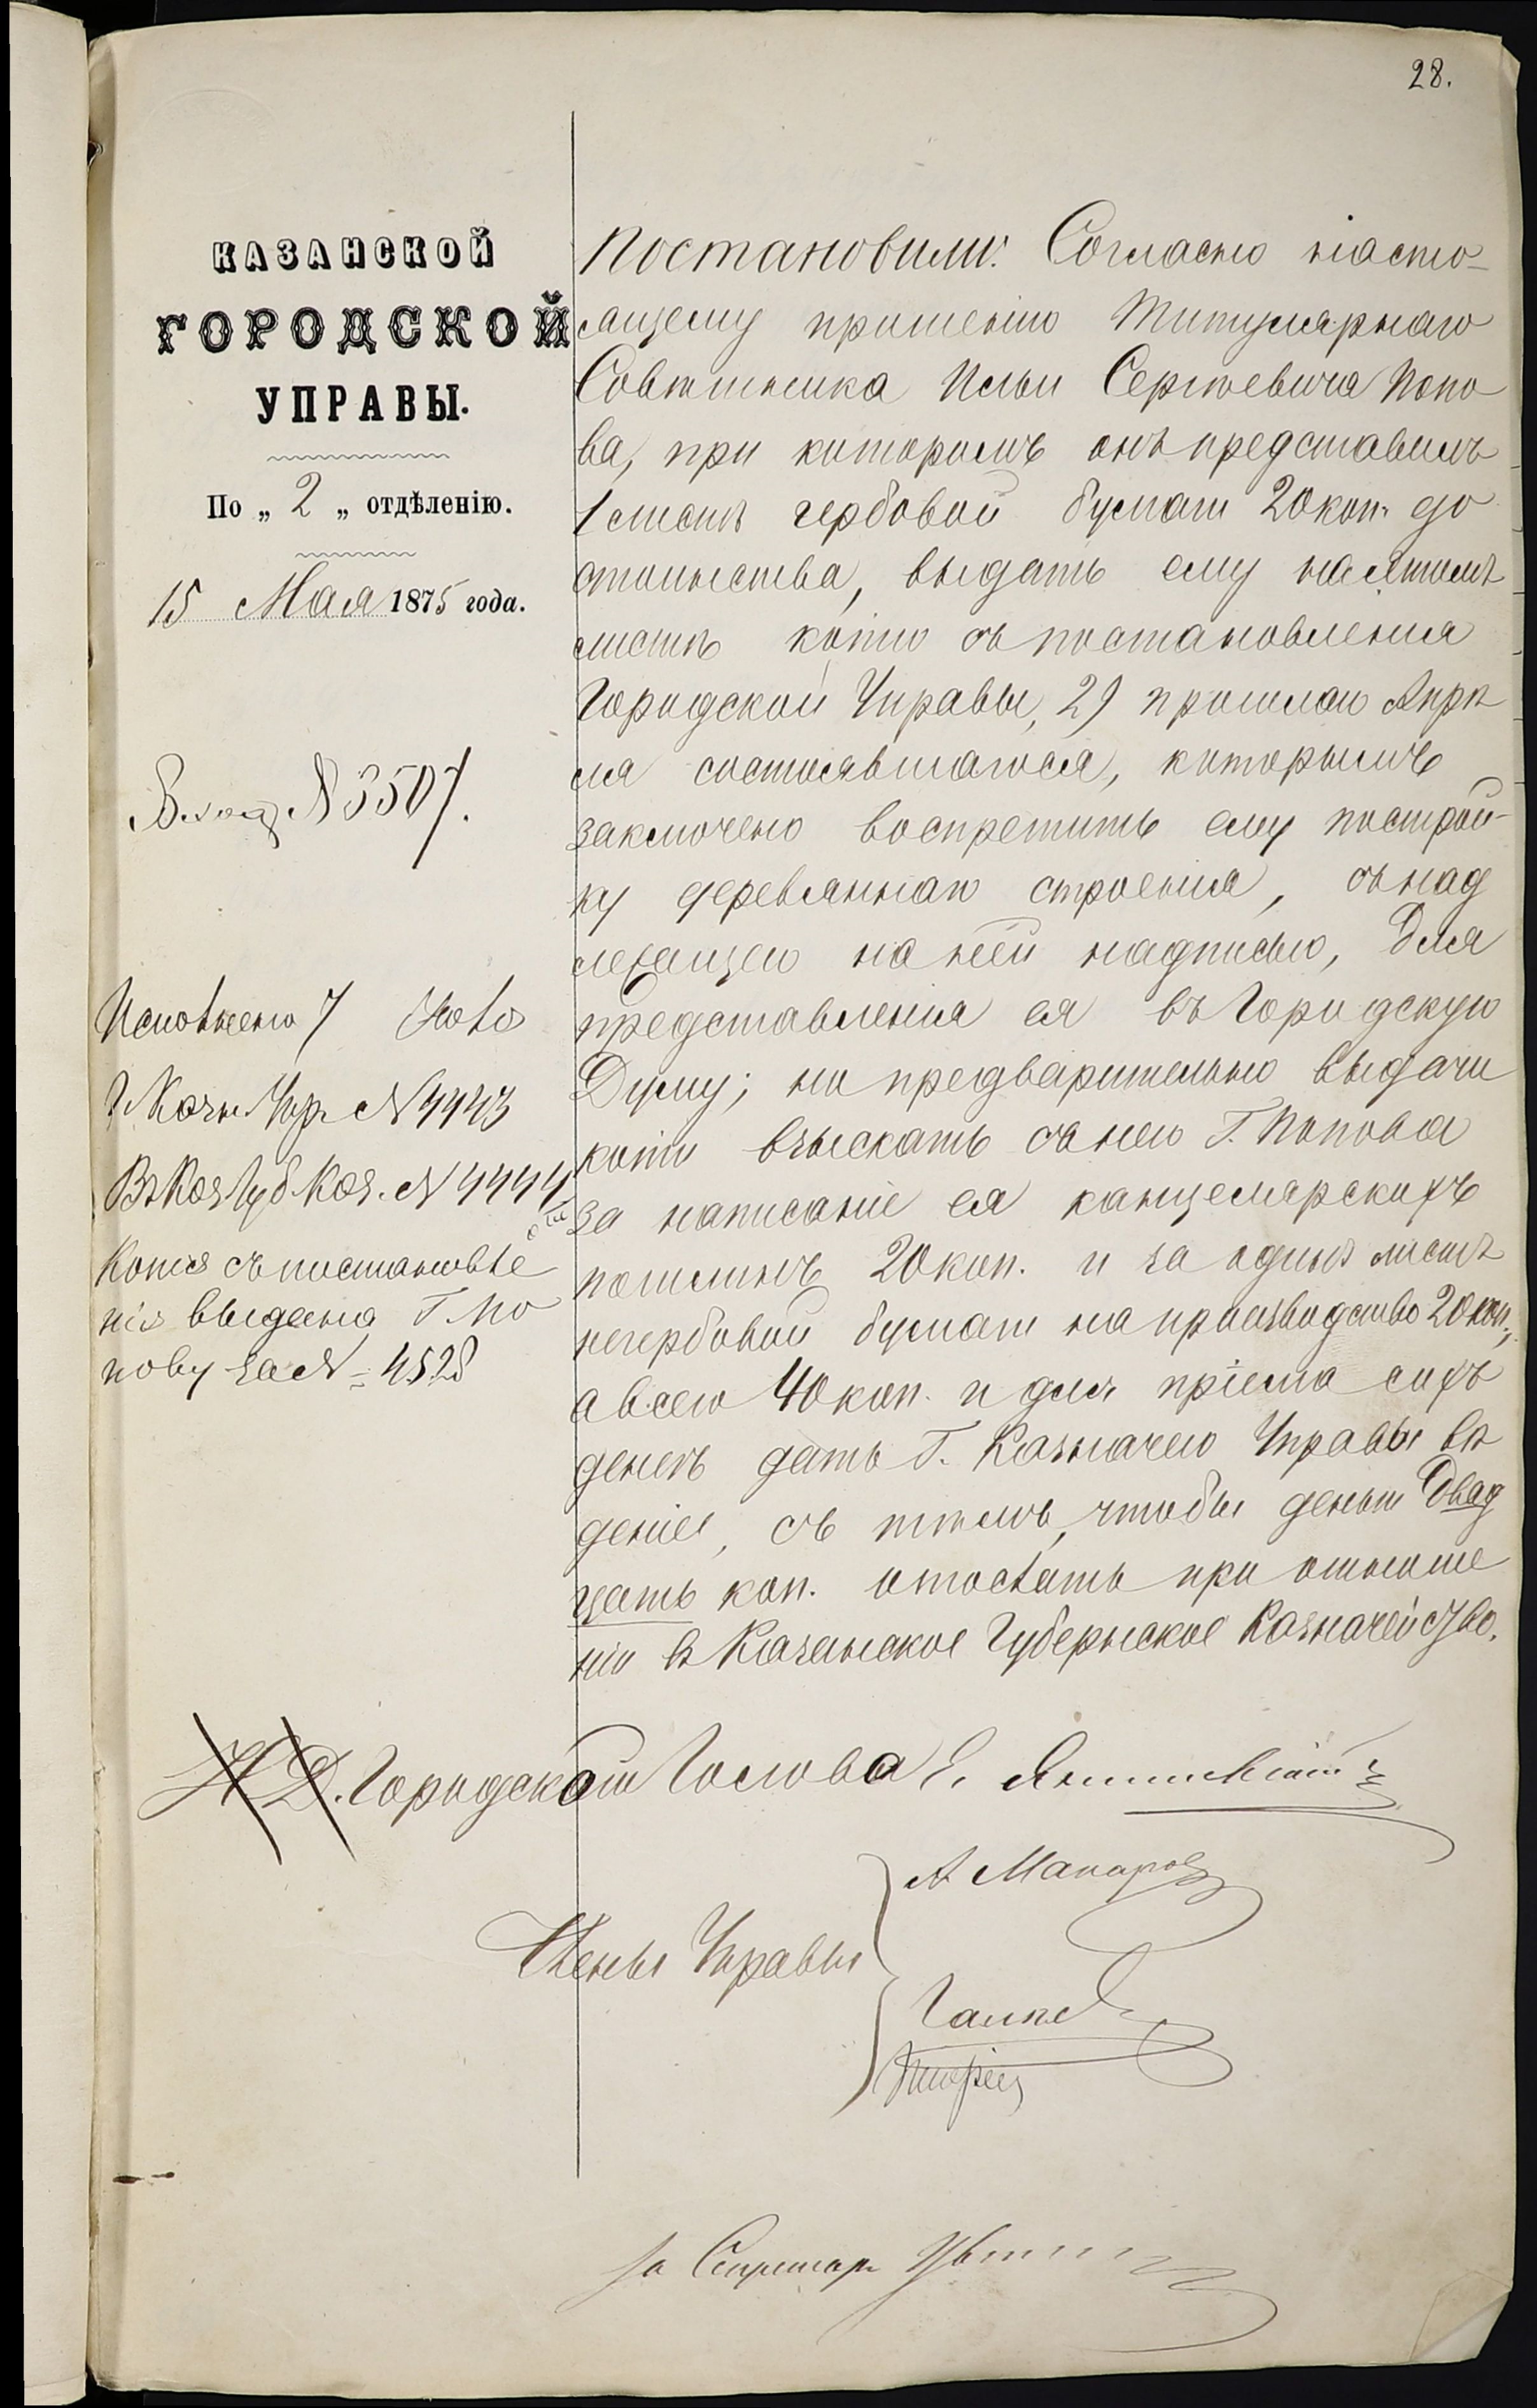 28.
КАЗАНСКОЙ
ГОРОДСКОЙ
УПРАВЫ.
По „ 2 „ отдѣленію.
15 Мая 1875 года.
Вход. № 3507.
Исполнено 7 Іюля
Г. Казн. Упр. № 4443
Въ Каз. Губ. Каз. № 4444
Копія съ постановле
нія выдана Г. По
пову за № 4528
Постановили: Согласно насто-
ящему прошенію Титулярнаго
Совѣтника Ильи Сергѣевича Попо
ва, при которомъ онъ представилъ
1 листъ гербовой бумаги 20 коп. до
стоинства, выдать ему на этомъ
листѣ копію съ постановленія
Городской Управы, 29 прошлаго Апрѣ
ля состоявшагося, которымъ
заключено воспретить ему построй-
ку деревяннаго строенія, съ над
лежащею на ней надписью, для
представленія ея въ Городскую
Думу; но предварительно выдачи
копіи взыскать съ него Г. Попова
за написаніе ея канцелярскихъ
пошлинъ 20 коп. и за одинъ листъ
негербовой бумаги на производство 20 коп.,
а всего 40 коп. и для пріема сихъ
денегъ дать Г. Казначею Управы вѣ
деніе, съ тѣмъ, чтобы деньги двад
цать коп. отослать при отноше
ніи въ Казанское Губернское Казначейство.
И. Д. Городской Голова Е. Янишевскій
Члены Управы
А. Макаровъ
За Секретаря